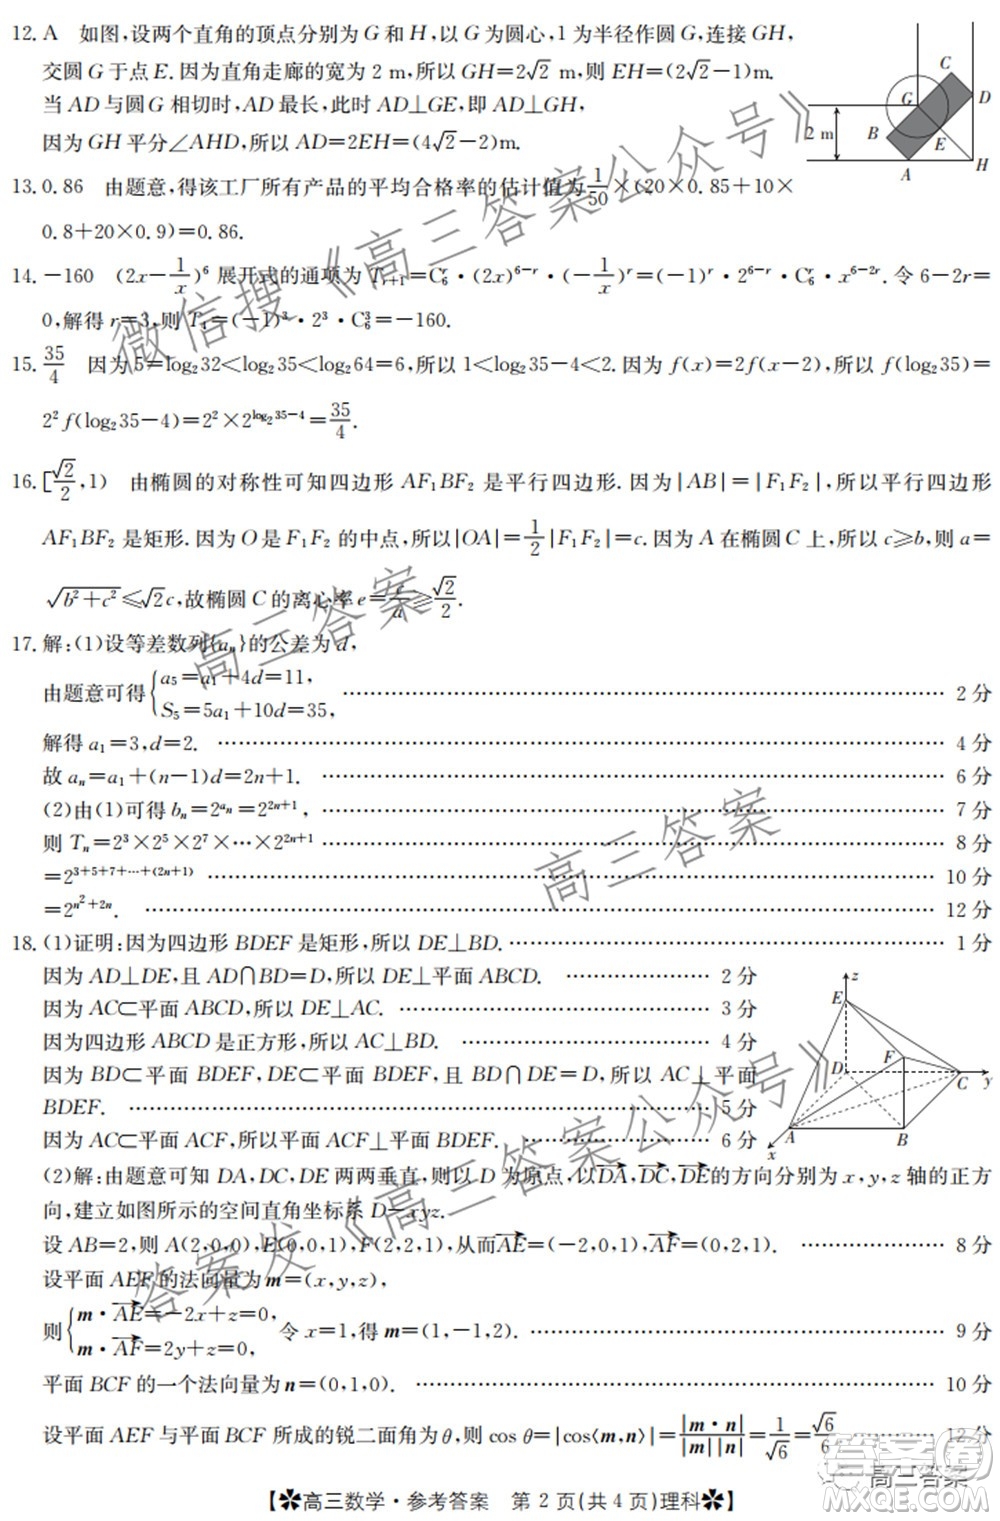 12. A　如图,设两个直角的顶点分别为 G 和 H,以 G 为圆心,1 为半径作圆 G,连接 GH,
交圆 G 于点 E. 因为直角走廊的宽为 2 m,所以 GH=2√2 m,则 EH=(2√2-1)m.
当 AD 与圆 G 相切时,AD 最长,此时 AD⊥GE,即 AD⊥GH,
因为 GH 平分∠AHD,所以 AD=2EH=(4√2-2)m.
C
G
D
B
2 m
E
A
H
13. 0.86　由题意,得该工厂所有产品的平均合格率的估计值为 1/50 ×(20×0.85+10×
0.8+20×0.9)=0.86.
14. -160　(2x-1/x)⁶ 展开式的通项为 T_{r+1}=C₆^r·(2x)^{6-r}·(-1/x)^r=(-1)^r·2^{6-r}·C₆^r·x^{6-2r}. 令 6-2r=
0,解得 r=3,则 T₄=(-1)³·2³·C₆³=-160.
15. 35/4　因为 5=log₂32<log₂35<log₂64=6,所以 1<log₂35-4<2. 因为 f(x)=2f(x-2),所以 f(log₂35)=
2²f(log₂35-4)=2²×2^{log₂35-4}=35/4.
16. [√2/2,1)　由椭圆的对称性可知四边形 AF₁BF₂ 是平行四边形. 因为|AB|=|F₁F₂|,所以平行四边形
AF₁BF₂ 是矩形. 因为 O 是 F₁F₂ 的中点,所以|OA|=1/2|F₁F₂|=c. 因为 A 在椭圆 C 上,所以 c≥b,则 a=
√(b²+c²)≤√2c,故椭圆 C 的离心率 e=c/a≥√2/2.
17. 解:(1)设等差数列{aₙ}的公差为 d,
由题意可得{a₅=a₁+4d=11, S₅=5a₁+10d=35, …… 2 分
解得 a₁=3,d=2. …… 4 分
故 aₙ=a₁+(n-1)d=2n+1. …… 6 分
(2)由(1)可得 bₙ=2^{aₙ}=2^{2n+1}, …… 7 分
则 Tₙ=2³×2⁵×2⁷×…×2^{2n+1} …… 8 分
=2^{3+5+7+…+(2n+1)} …… 10 分
=2^{n²+2n}. …… 12 分
18. (1)证明:因为四边形 BDEF 是矩形,所以 DE⊥BD. …… 1 分
因为 AD⊥DE,且 AD∩BD=D,所以 DE⊥平面 ABCD. …… 2 分
因为 AC⊂平面 ABCD,所以 DE⊥AC. …… 3 分
因为四边形 ABCD 是正方形,所以 AC⊥BD. …… 4 分
因为 BD⊂平面 BDEF,DE⊂平面 BDEF,且 BD∩DE=D,所以 AC⊥平面
BDEF. …… 5 分
因为 AC⊂平面 ACF,所以平面 ACF⊥平面 BDEF. …… 6 分
z
E
F
D
C
y
A
B
x
(2)解:由题意可知 DA,DC,DE 两两垂直,则以 D 为原点,以DA→,DC→,DE→的方向分别为 x,y,z 轴的正方
向,建立如图所示的空间直角坐标系 D-xyz.
设 AB=2,则 A(2,0,0),E(0,0,1),F(2,2,1),从而AE→=(-2,0,1),AF→=(0,2,1). …… 8 分
设平面 AEF 的法向量为 m=(x,y,z),
则{m·AE→=-2x+z=0, m·AF→=2y+z=0, 令 x=1,得 m=(1,-1,2). …… 9 分
平面 BCF 的一个法向量为 n=(0,1,0). …… 10 分
设平面 AEF 与平面 BCF 所成的锐二面角为 θ,则 cos θ=|cos⟨m,n⟩|=|m·n|/|m||n|=1/√6=√6/6. …… 12 分
【✽高三数学·参考答案　第 2 页(共 4 页)理科✽】
微信搜《高三答案公众号》
高三答案
高三答案
答案发《高三答案公众号》
高三答案
答案圈